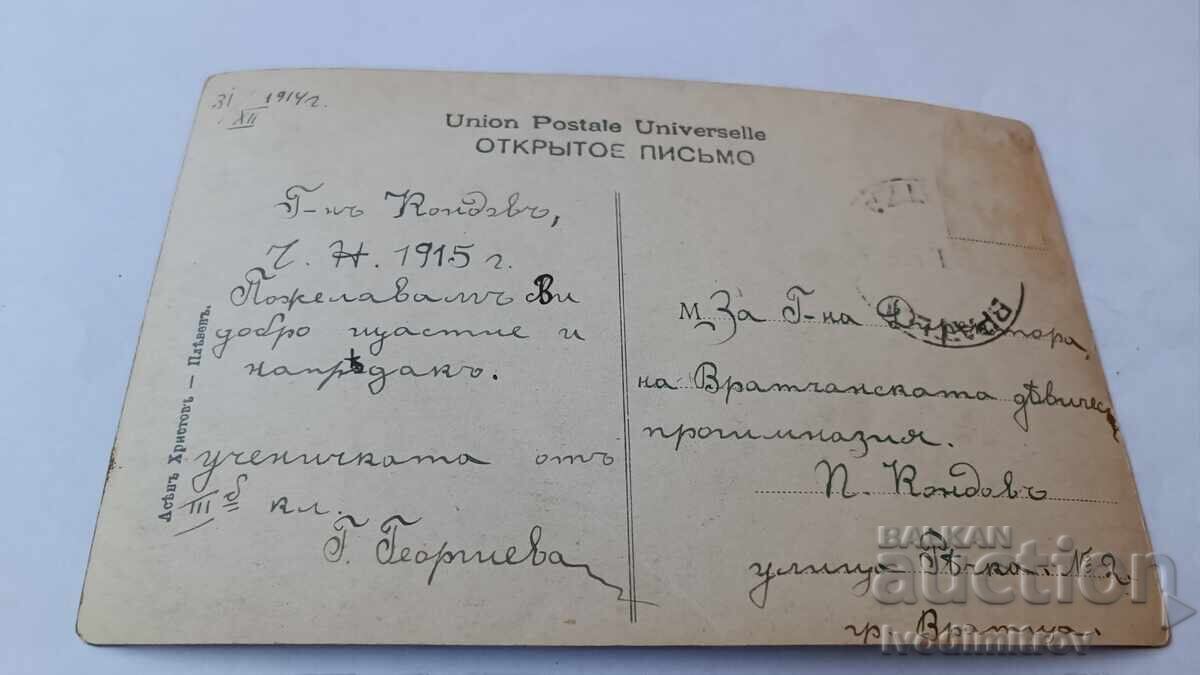 31 1914 г.
XII
Union Postale Universelle
ОТКРЫТОЕ ПИСЬМО
Г-нъ Кондовъ,
Ч. Н. 1915 г.
Пожелавамъ Ви
добро щастие и
напрѣдакъ.
ученичката отъ
III б кл.
Г. Георгиева
Асѣнъ Христовъ — Плѣвенъ.
За Г-на Директора,
на Вратчанската дѣвическ
прогимназия.
П. Кондовъ
улица Рѣчка № 2.
гр. Вратца.
BALKAN
auction
ivodimitrov